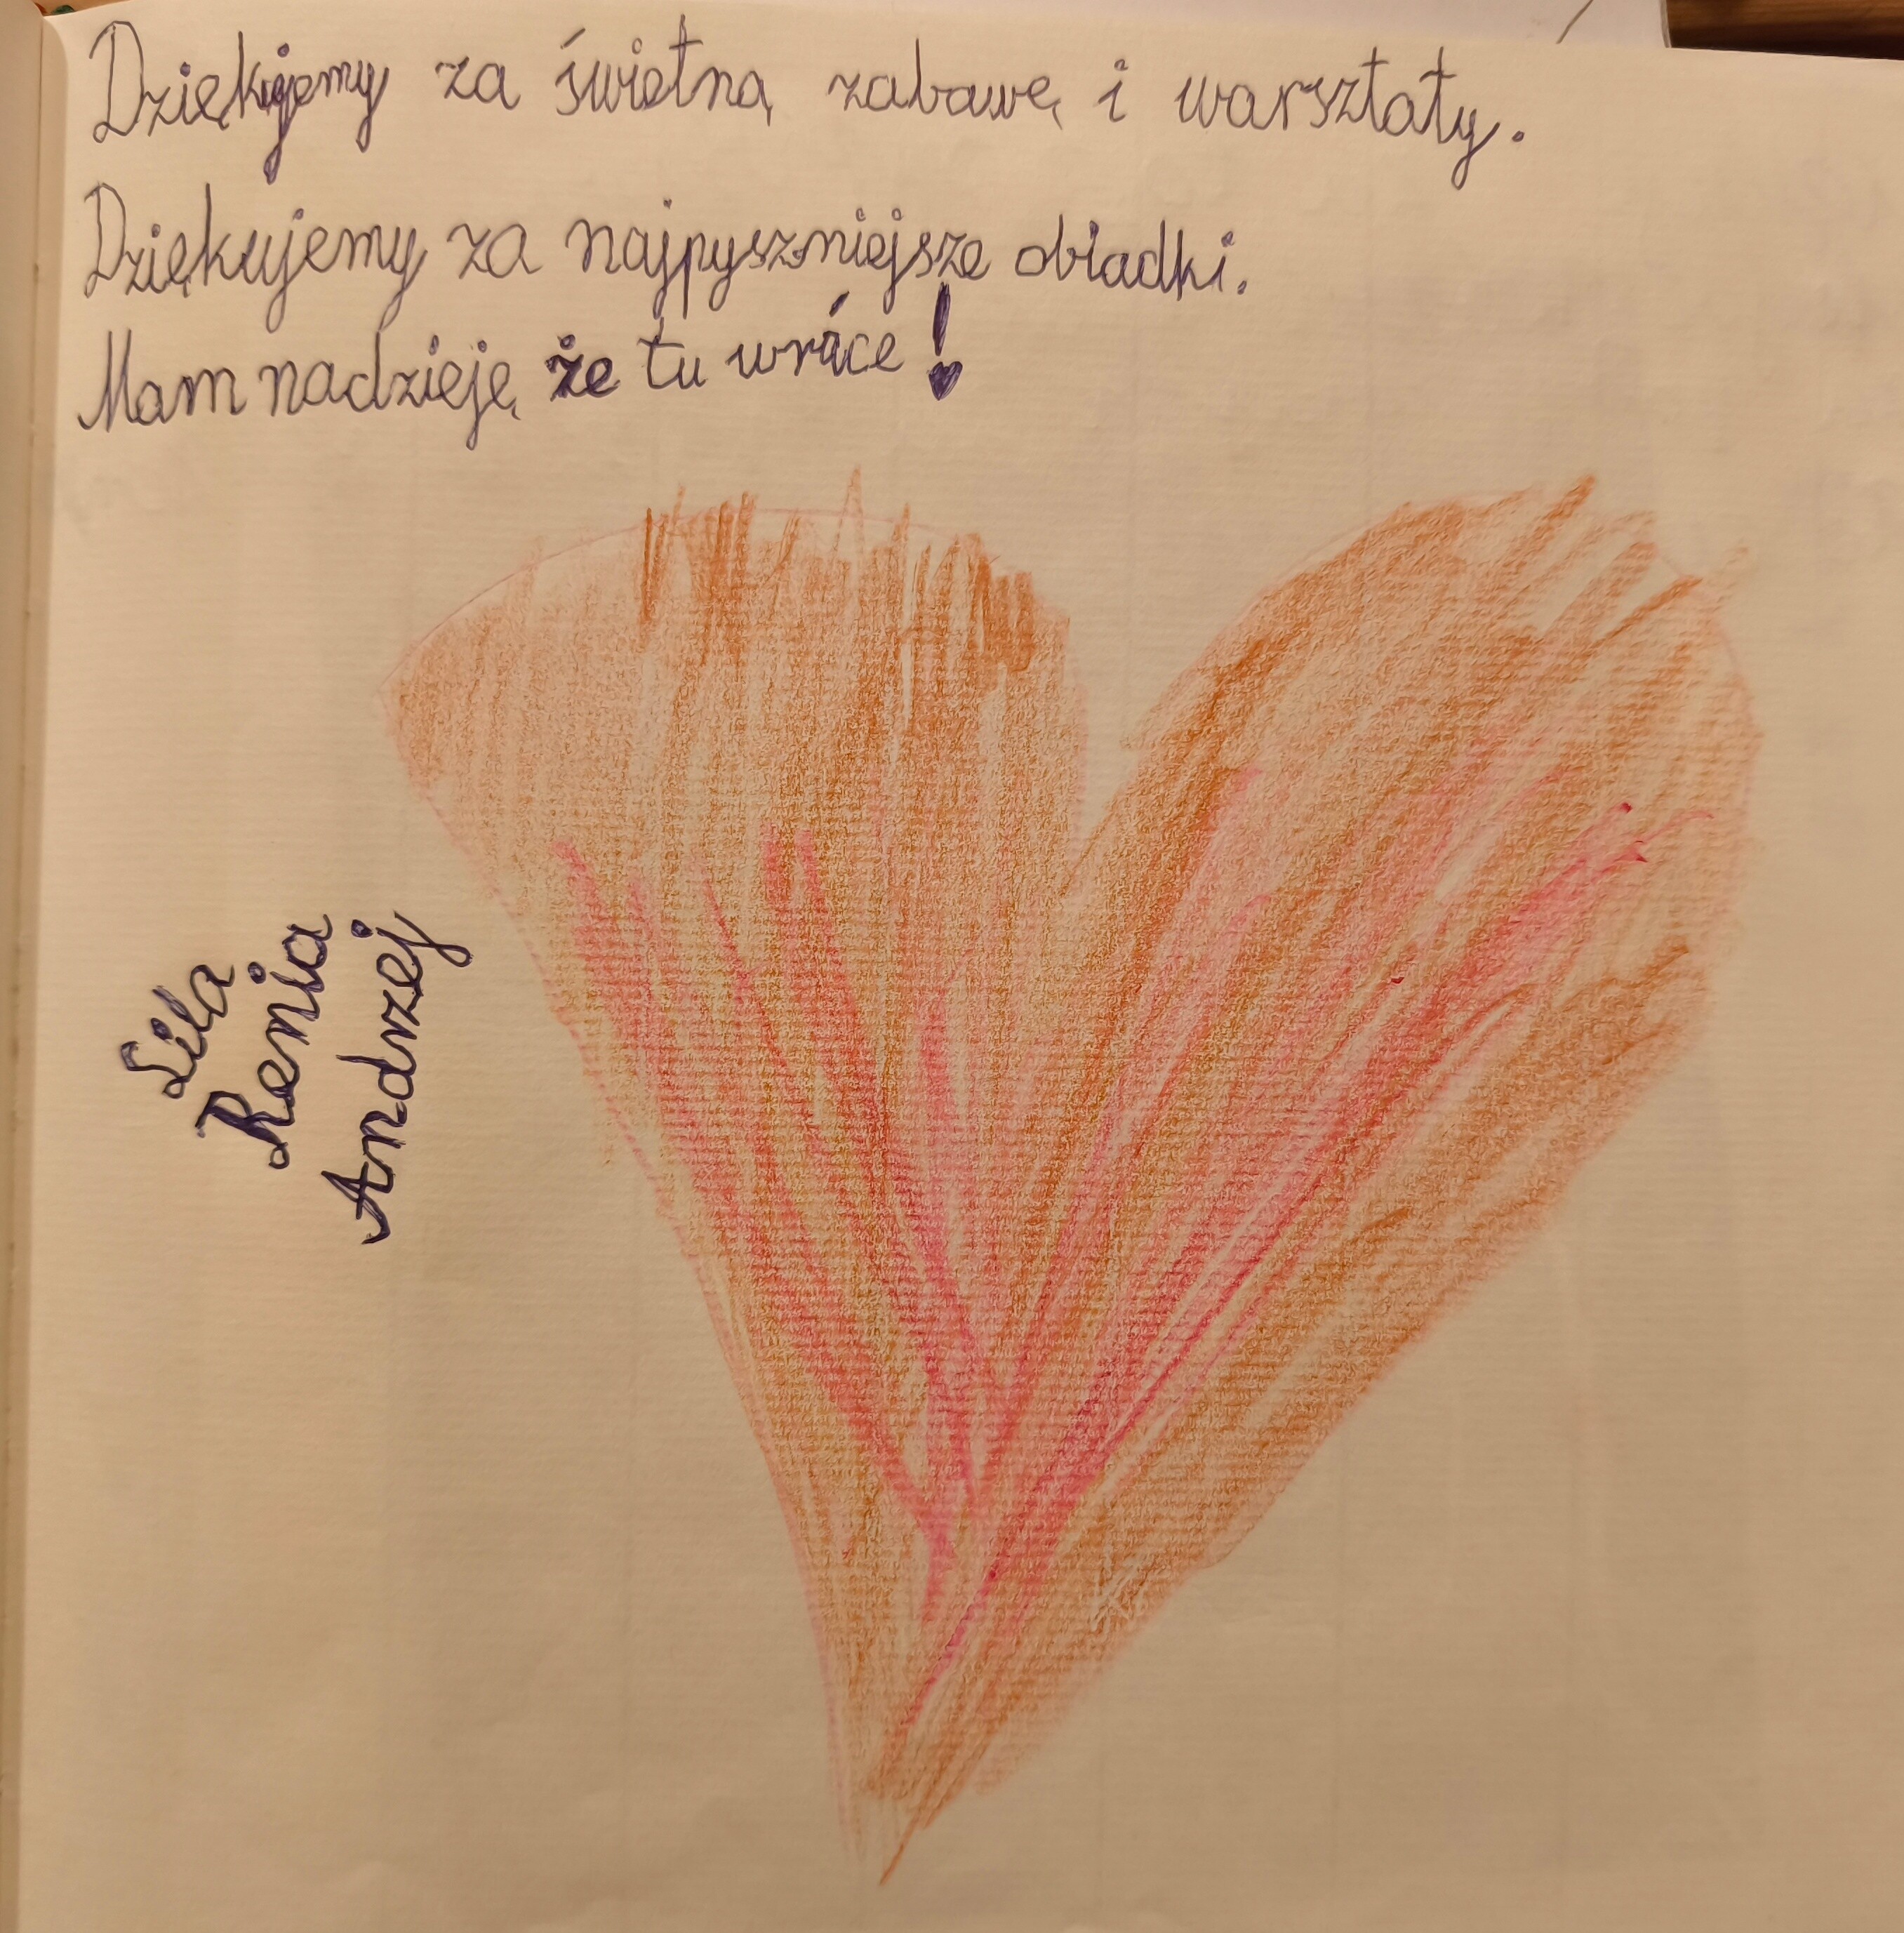 Dziękujemy za świetną zabawę i warsztaty.
Dziękujemy za najpyszniejsze obiadki.
Mam nadzieję że tu wráce!
Lila
Renia
Andrzej